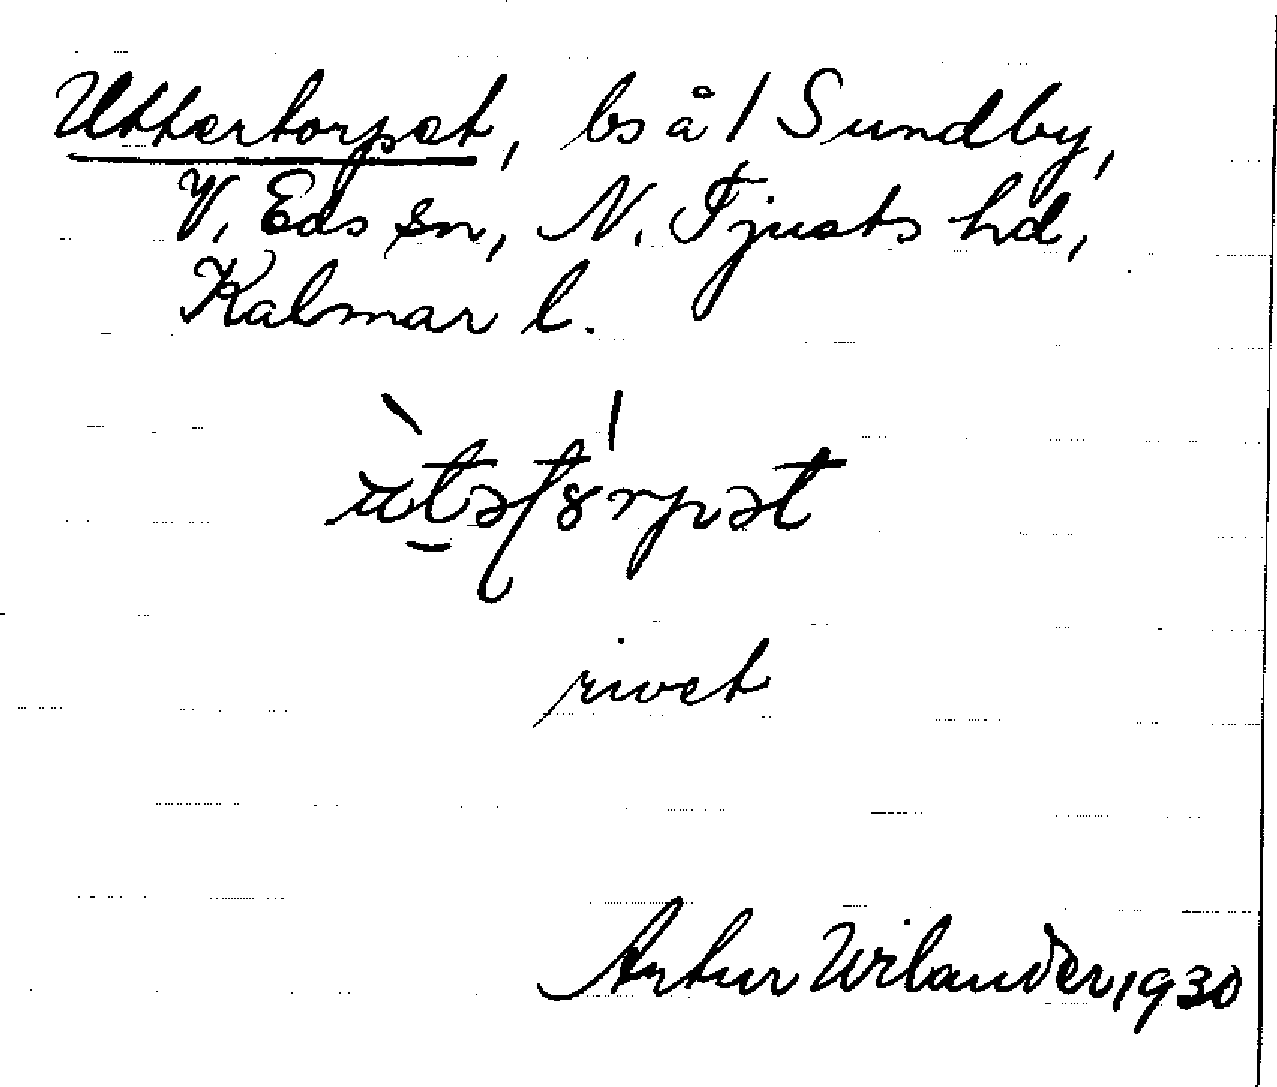 Uttertorpet, bs å / Sundby,
V. Eds sn, N. Tjusts hd,
Kalmar l.
rivet
Artur Wilander, 1930